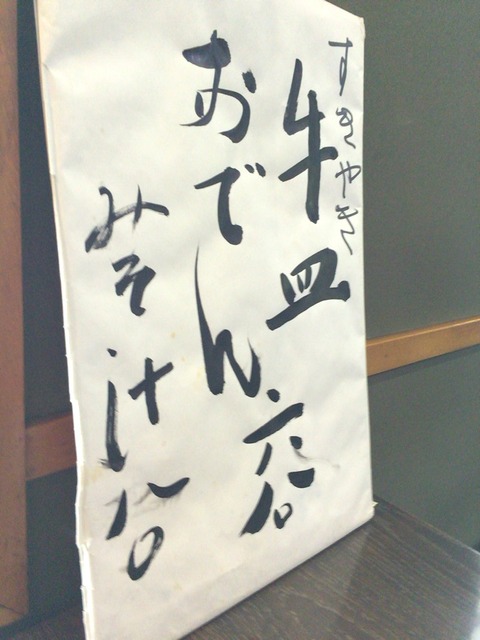 すきやき
牛皿
おでん
みそ汁